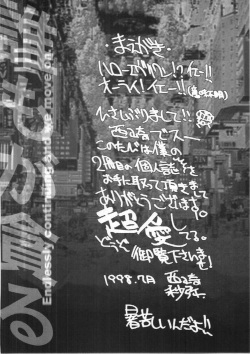 ・まえがき・
ハローエヴリワン!?イェー!!
オーライ!イェー!!(意味不明)
ひさしぶりまして!!
西崎でスー
このたびは僕の
2冊目の個人誌を
お手に取って頂きまして
ありがとうございます。
超愛してる。
どうぞ
御覧下さいませ
1998.7月 西崎
暑苦しいんだよ!!
Endlessly continuing and we move on.